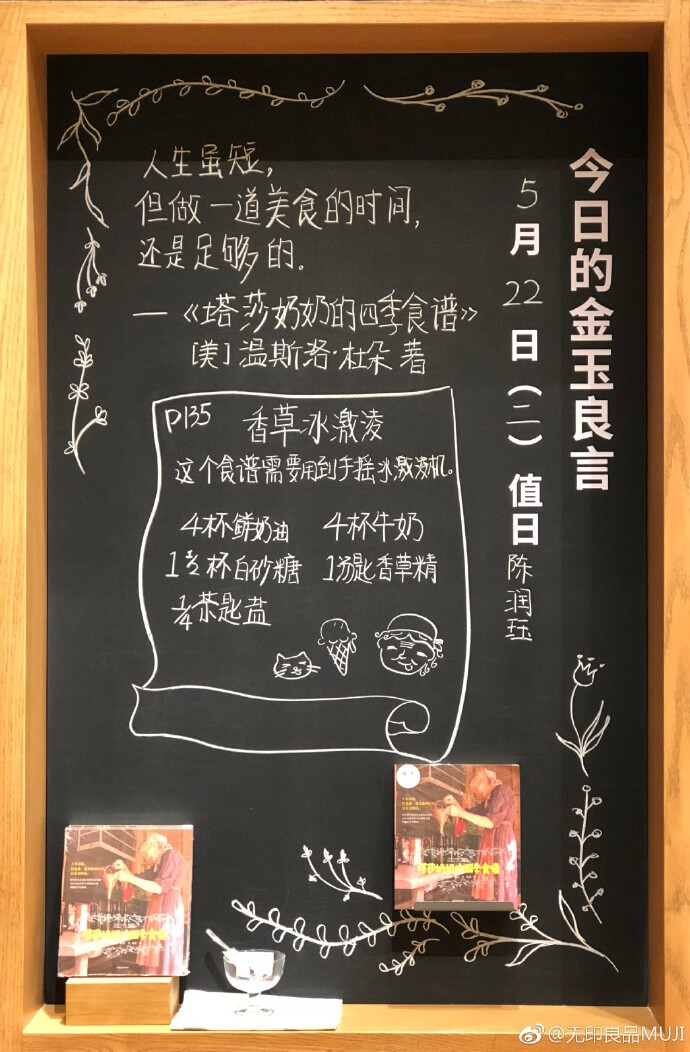 今日的金玉良言
5月22日（二）值日 陈润珏
人生虽短，
但做一道美食的时间，
还是足够的。
—《塔莎奶奶的四季食谱》
[美] 温斯洛·杜朵 著
P135 香草冰激凌
这个食谱需要用到手摇冰激凌机。
4杯鲜奶油 4杯牛奶
1½杯白砂糖 1汤匙香草精
¼茶匙盐
塔莎奶奶的四季食谱
塔莎奶奶的四季食谱
@无印良品MUJI